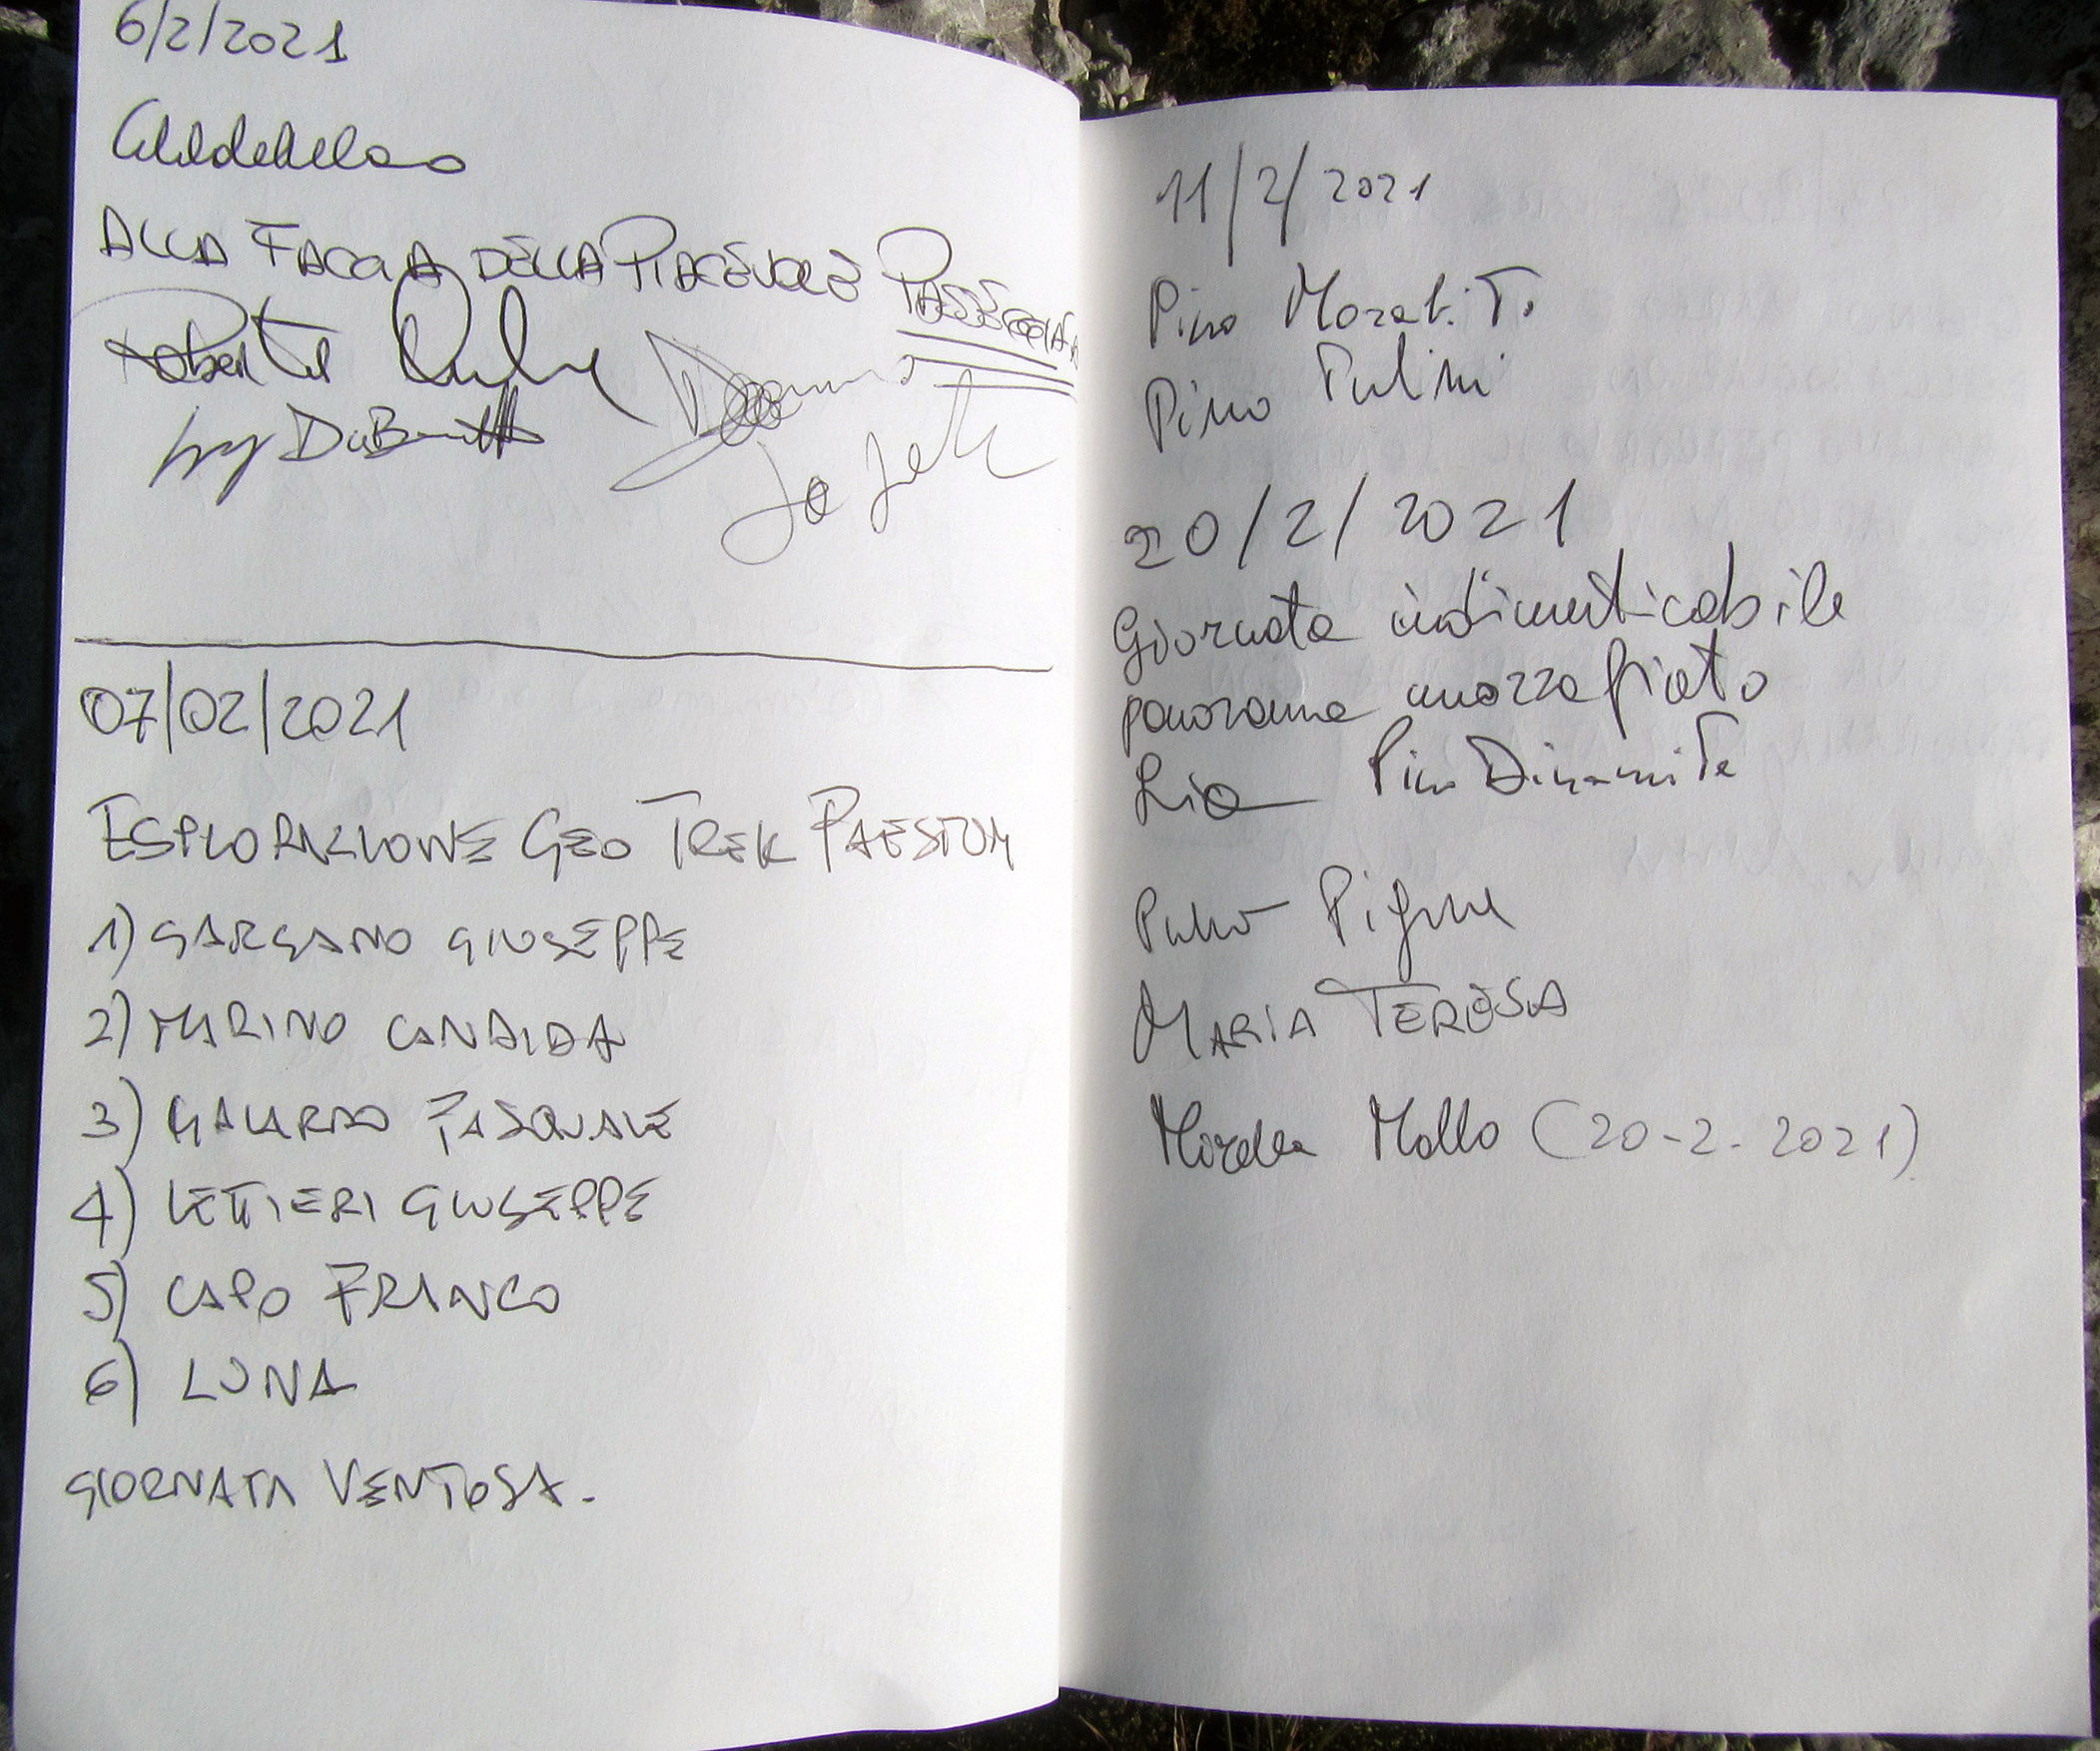 6/2/2021
ALLA FACCIA DELLA PIACEVOLE PASSEGGIATA
Roberto
by
07/02/2021
ESPLORAZIONE GEO TREK PAESTUM
1) GARGANO GIUSEPPE
2) MARINO CANDIDA
3) GALARDO PASQUALE
4) LETTIERI GIUSEPPE
5) CAPO FRANCO
6) LUNA
GIORNATA VENTOSA.
11/2/2021
Pino Morabito
Pino Fulini
20/2/2021
Giornata indimenticabile
panorama mozzafiato
Lia Pino Dinamite
MARIA TERESA
Mirella Mollo (20-2-2021)